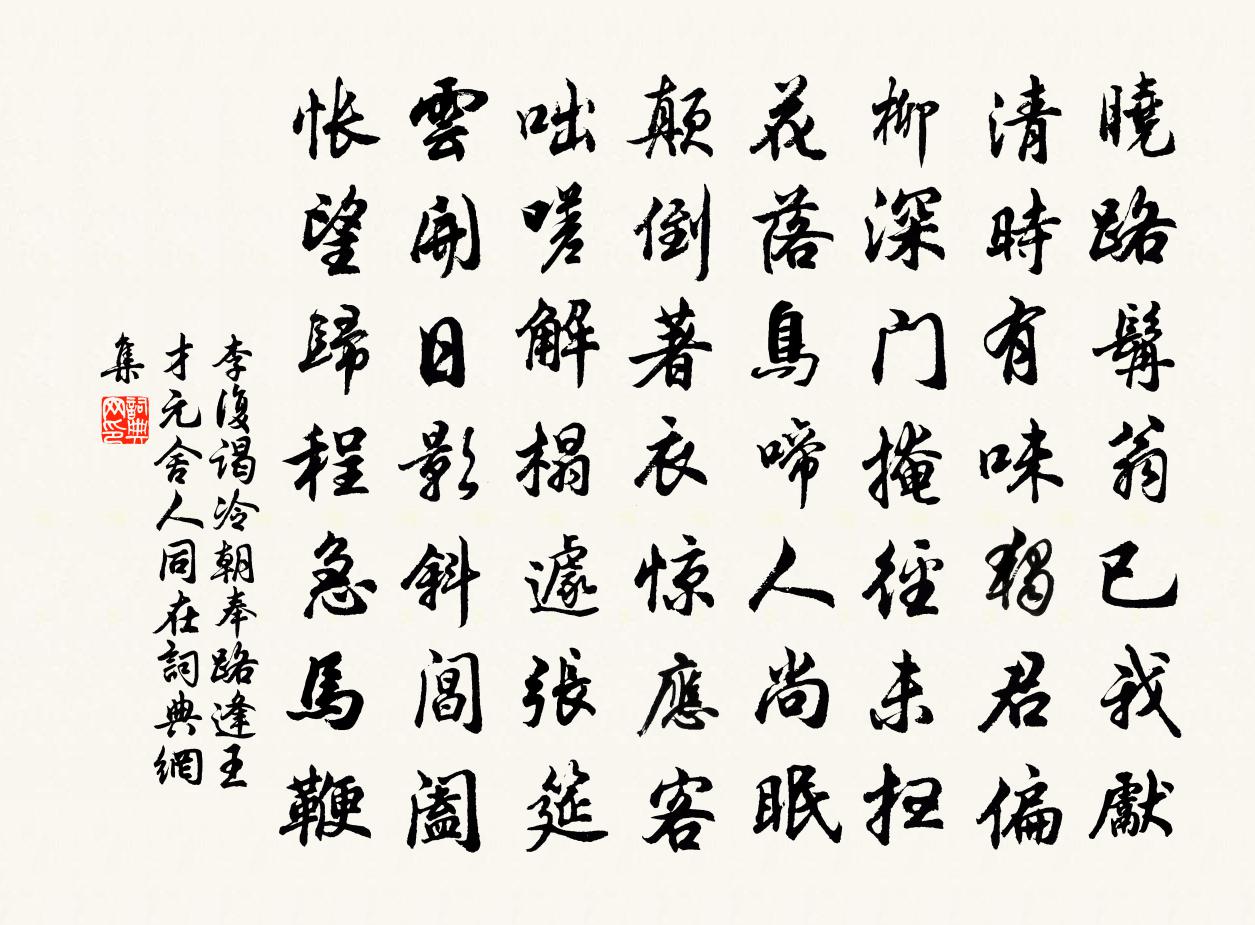 曉路髯翁已我獻
清時有味獨君偏
柳深门掩徑未扫
花落鳥啼人尚眠
顛倒著衣惊應客
咄嗟解榻遽張筵
雲開日影斜閶闔
怅望歸程急馬鞭
李復謁冷朝奉路逢王
才元舍人同在詞典網
集
詞典
网印